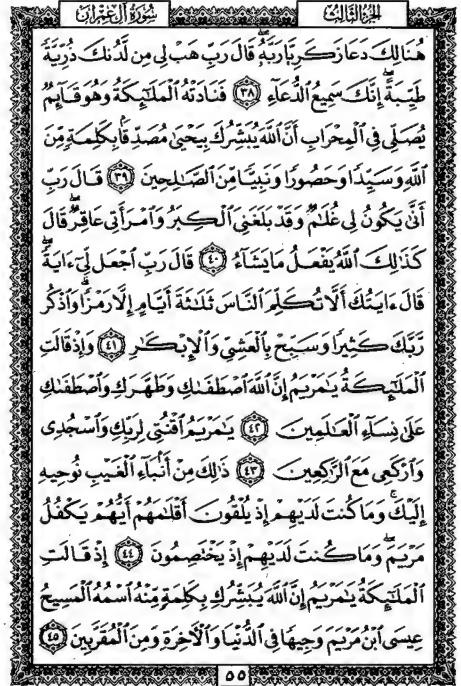 سُورَةُ آلِ عِمْرَان
الجزء الثالث
هُنَالِكَ دَعَا زَكَرِيَّا رَبَّهُۥ ۖ قَالَ رَبِّ هَبْ لِى مِن لَّدُنكَ ذُرِّيَّةً
طَيِّبَةً ۖ إِنَّكَ سَمِيعُ ٱلدُّعَآءِ ٣٨ فَنَادَتْهُ ٱلْمَلَٰٓئِكَةُ وَهُوَ قَآئِمٌ
يُصَلِّى فِى ٱلْمِحْرَابِ أَنَّ ٱللَّهَ يُبَشِّرُكَ بِيَحْيَىٰ مُصَدِّقًۢا بِكَلِمَةٍ مِّنَ
ٱللَّهِ وَسَيِّدًا وَحَصُورًا وَنَبِيًّا مِّنَ ٱلصَّٰلِحِينَ ٣٩ قَالَ رَبِّ
أَنَّىٰ يَكُونُ لِى غُلَٰمٌ وَقَدْ بَلَغَنِىَ ٱلْكِبَرُ وَٱمْرَأَتِى عَاقِرٌ ۖ قَالَ
كَذَٰلِكَ ٱللَّهُ يَفْعَلُ مَا يَشَآءُ ٤٠ قَالَ رَبِّ ٱجْعَل لِّىٓ ءَايَةً ۖ
قَالَ ءَايَتُكَ أَلَّا تُكَلِّمَ ٱلنَّاسَ ثَلَٰثَةَ أَيَّامٍ إِلَّا رَمْزًا ۗ وَٱذْكُر
رَّبَّكَ كَثِيرًا وَسَبِّحْ بِٱلْعَشِىِّ وَٱلْإِبْكَٰرِ ٤١ وَإِذْ قَالَتِ
ٱلْمَلَٰٓئِكَةُ يَٰمَرْيَمُ إِنَّ ٱللَّهَ ٱصْطَفَىٰكِ وَطَهَّرَكِ وَٱصْطَفَىٰكِ
عَلَىٰ نِسَآءِ ٱلْعَٰلَمِينَ ٤٢ يَٰمَرْيَمُ ٱقْنُتِى لِرَبِّكِ وَٱسْجُدِى
وَٱرْكَعِى مَعَ ٱلرَّٰكِعِينَ ٤٣ ذَٰلِكَ مِنْ أَنۢبَآءِ ٱلْغَيْبِ نُوحِيهِ
إِلَيْكَ ۚ وَمَا كُنتَ لَدَيْهِمْ إِذْ يُلْقُونَ أَقْلَٰمَهُمْ أَيُّهُمْ يَكْفُلُ
مَرْيَمَ ۖ وَمَا كُنتَ لَدَيْهِمْ إِذْ يَخْتَصِمُونَ ٤٤ إِذْ قَالَتِ
ٱلْمَلَٰٓئِكَةُ يَٰمَرْيَمُ إِنَّ ٱللَّهَ يُبَشِّرُكِ بِكَلِمَةٍ مِّنْهُ ٱسْمُهُ ٱلْمَسِيحُ
عِيسَى ٱبْنُ مَرْيَمَ وَجِيهًا فِى ٱلدُّنْيَا وَٱلْءَاخِرَةِ وَمِنَ ٱلْمُقَرَّبِينَ ٤٥
٥٥